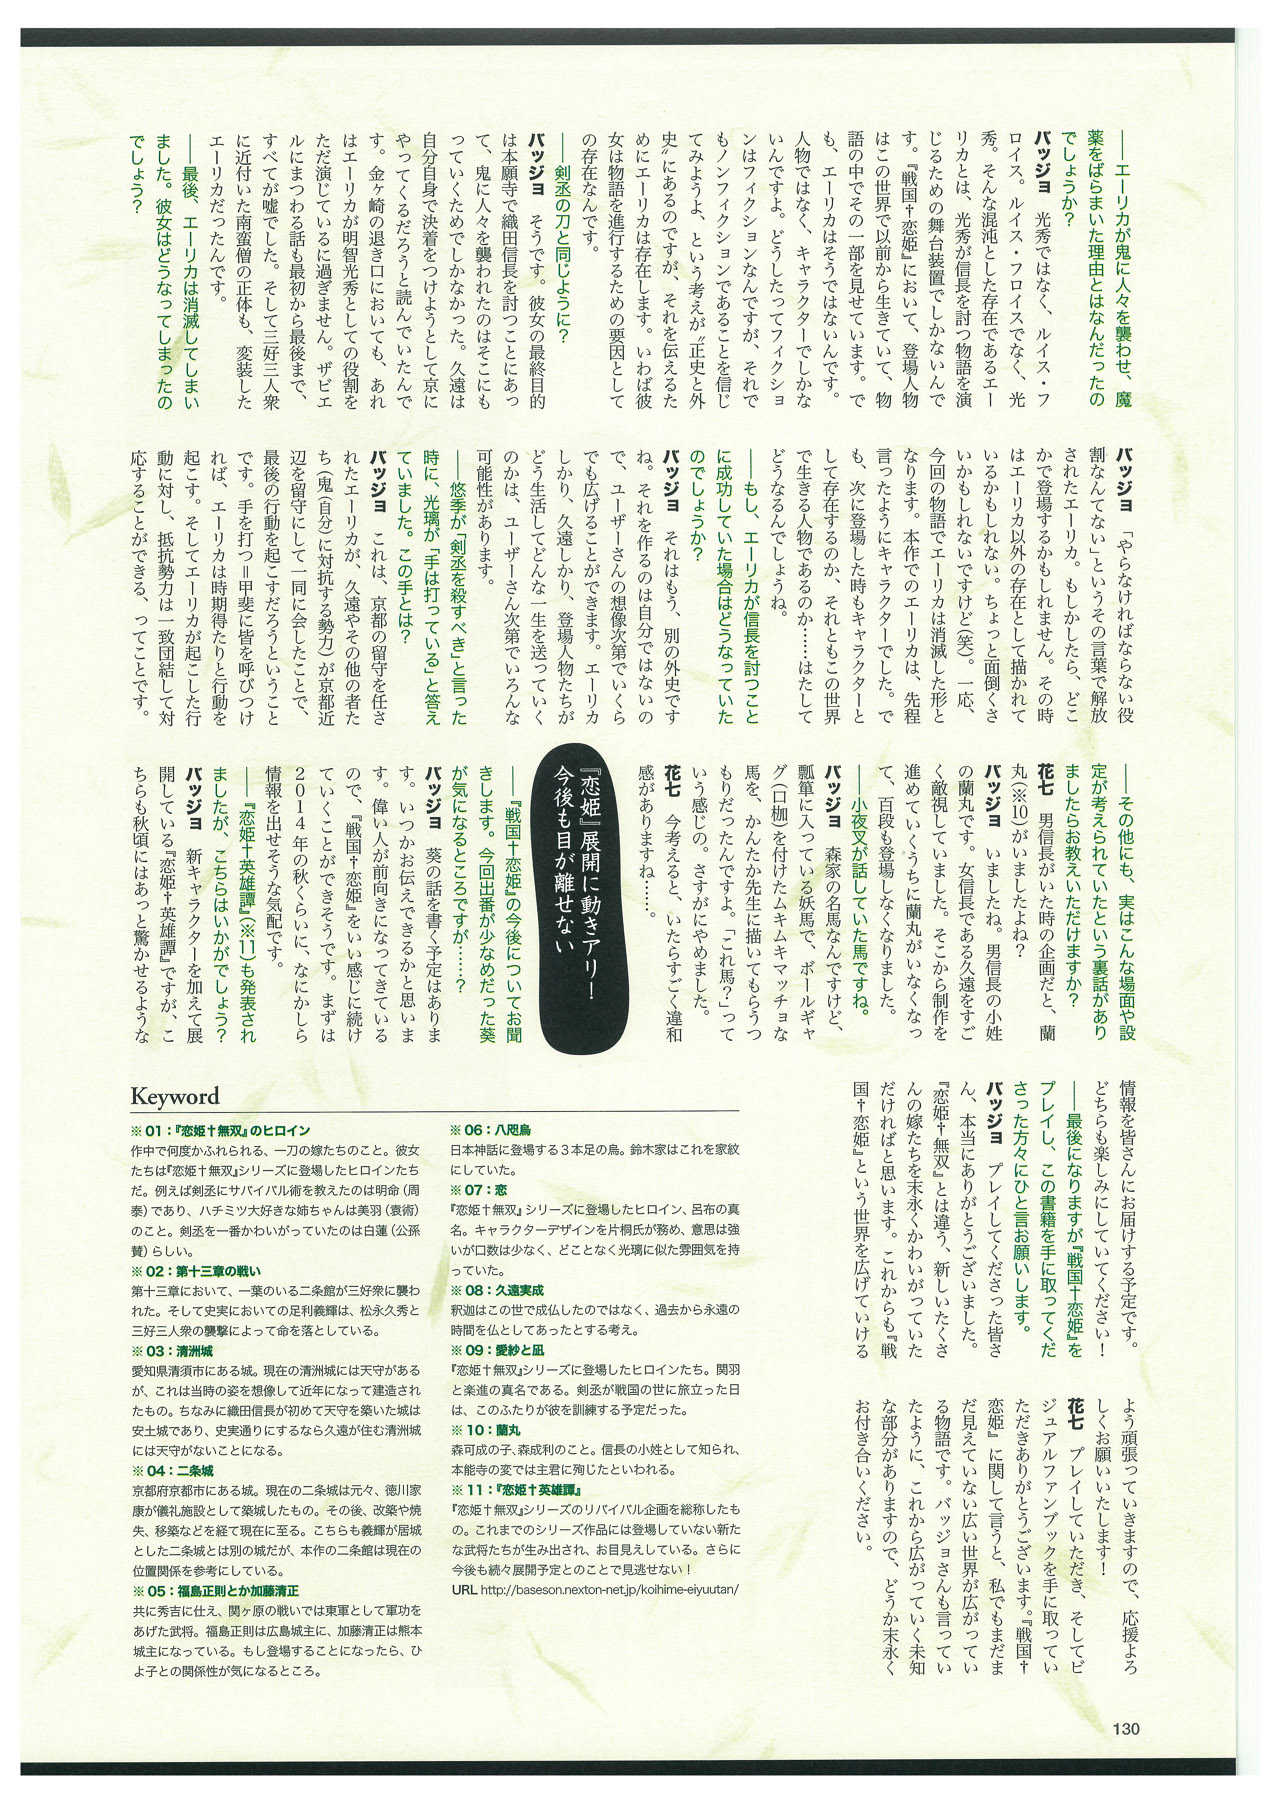 ――エーリカが鬼に人々を襲わせ、魔
薬をばらまいた理由とはなんだったの
でしょうか？
バッジョ　光秀ではなく、ルイス・フ
ロイス。ルイス・フロイスでなく、光
秀。そんな混沌とした存在であるエー
リカとは、光秀が信長を討つ物語を演
じるための舞台装置でしかないんで
す。『戦国†恋姫』において、登場人物
はこの世界で以前から生きていて、物
語の中でその一部を見せています。で
も、エーリカはそうではないんです。
人物ではなく、キャラクターでしかな
いんですよ。どうしたってフィクショ
ンはフィクションなんですが、それで
もノンフィクションであることを信じ
てみようよ、という考えが〝正史と外
史〟にあるのですが、それを伝えるた
めにエーリカは存在します。いわば彼
女は物語を進行するための要因として
の存在なんです。
――剣丞の刀と同じように？
バッジョ　そうです。彼女の最終目的
は本願寺で織田信長を討つことにあっ
て、鬼に人々を襲われたのはそこにも
っていくためでしかなかった。久遠は
自分自身で決着をつけようとして京に
やってくるだろうと読んでいたんで
す。金ヶ崎の退き口においても、あれ
はエーリカが明智光秀としての役割を
ただ演じているに過ぎません。ザビエ
ルにまつわる話も最初から最後まで、
すべてが嘘でした。そして三好三人衆
に近付いた南蛮僧の正体も、変装した
エーリカだったんです。
――最後、エーリカは消滅してしまい
ました。彼女はどうなってしまったの
でしょう？
バッジョ　「やらなければならない役
割なんてない」というその言葉で解放
されたエーリカ。もしかしたら、どこ
かで登場するかもしれません。その時
はエーリカ以外の存在として描かれて
いるかもしれない。ちょっと面倒くさ
いかもしれないですけど（笑）。一応、
今回の物語でエーリカは消滅した形と
なります。本作でのエーリカは、先程
言ったようにキャラクターでした。で
も、次に登場した時もキャラクターと
して存在するのか、それともこの世界
で生きる人物であるのか……はたして
どうなるんでしょうね。
――もし、エーリカが信長を討つこと
に成功していた場合はどうなっていた
のでしょうか？
バッジョ　それはもう、別の外史です
ね。それを作るのは自分ではないの
で、ユーザーさんの想像次第でいくら
でも広げることができます。エーリカ
しかり、久遠しかり、登場人物たちが
どう生活してどんな一生を送っていく
のかは、ユーザーさん次第でいろんな
可能性があります。
――悠季が「剣丞を殺すべき」と言った
時に、光璃が「手は打っている」と答え
ていました。この手とは？
バッジョ　これは、京都の留守を任さ
れたエーリカが、久遠やその他の者た
ち（鬼（自分）に対抗する勢力）が京都近
辺を留守にして一同に会したことで、
最後の行動を起こすだろうということ
です。手を打つ＝甲斐に皆を呼びつけ
れば、エーリカは時期得たりと行動を
起こす。そしてエーリカが起こした行
動に対し、抵抗勢力は一致団結して対
応することができる、ってことです。
――その他にも、実はこんな場面や設
定が考えられていたという裏話があり
ましたらお教えいただけますか？
花七　男信長がいた時の企画だと、蘭
丸（※10）がいましたよね？
バッジョ　いましたね。男信長の小姓
の蘭丸です。女信長である久遠をすご
く敵視していました。そこから制作を
進めていくうちに蘭丸がいなくなっ
て、百段も登場しなくなりました。
――小夜叉が話していた馬ですね。
バッジョ　森家の名馬なんですけど、
瓢箪に入っている妖馬で、ボールギャ
グ（口枷）を付けたムキムキマッチョな
馬を、かんたか先生に描いてもらうつ
もりだったんですよ。「これ馬？」って
いう感じの。さすがにやめました。
花七　今考えると、いたらすごく違和
感がありますね……。
『恋姫』展開に動きアリ！
今後も目が離せない
――『戦国†恋姫』の今後についてお聞
きします。今回出番が少なめだった葵
が気になるところですが……？
バッジョ　葵の話を書く予定はありま
す。いつかお伝えできるかと思いま
す。偉い人が前向きになってきている
ので、『戦国†恋姫』をいい感じに続け
ていくことができそうです。まずは
2014年の秋くらいに、なにかしら
情報を出せそうな気配です。
――『恋姫†英雄譚』（※11）も発表され
ましたが、こちらはいかがでしょう？
バッジョ　新キャラクターを加えて展
開している『恋姫†英雄譚』ですが、こ
ちらも秋頃にはあっと驚かせるような
情報を皆さんにお届けする予定です。
どちらも楽しみにしていてください！
――最後になりますが『戦国†恋姫』を
プレイし、この書籍を手に取ってくだ
さった方々にひと言お願いします。
バッジョ　プレイしてくださった皆さ
ん、本当にありがとうございました。
『恋姫†無双』とは違う、新しいたくさ
んの嫁たちを末永くかわいがっていた
だければと思います。これからも『戦
国†恋姫』という世界を広げていける
よう頑張っていきますので、応援よろ
しくお願いいたします！
花七　プレイしていただき、そしてビ
ジュアルファンブックを手に取ってい
ただきありがとうございます。『戦国†
恋姫』に関して言うと、私でもまだま
だ見えていない広い世界が広がってい
る物語です。バッジョさんも言ってい
たように、これから広がっていく未知
な部分がありますので、どうか末永く
お付き合いください。
Keyword
※01：『恋姫†無双』のヒロイン
作中で何度かふれられる、一刀の嫁たちのこと。彼女
たちは『恋姫†無双』シリーズに登場したヒロインたち
だ。例えば剣丞にサバイバル術を教えたのは明命（周
泰）であり、ハチミツ大好きな姉ちゃんは美羽（袁術）
のこと。剣丞を一番かわいがっていたのは白蓮（公孫
賛）らしい。
※02：第十三章の戦い
第十三章において、一葉のいる二条館が三好衆に襲わ
れた。そして史実においての足利義輝は、松永久秀と
三好三人衆の襲撃によって命を落としている。
※03：清洲城
愛知県清須市にある城。現在の清洲城には天守がある
が、これは当時の姿を想像して近年になって建造され
たもの。ちなみに織田信長が初めて天守を築いた城は
安土城であり、史実通りにするなら久遠が住む清洲城
には天守がないことになる。
※04：二条城
京都府京都市にある城。現在の二条城は元々、徳川家
康が儀礼施設として築城したもの。その後、改築や焼
失、移築などを経て現在に至る。こちらも義輝が居城
とした二条城とは別の城だが、本作の二条館は現在の
位置関係を参考にしている。
※05：福島正則とか加藤清正
共に秀吉に仕え、関ヶ原の戦いでは東軍として軍功を
あげた武将。福島正則は広島城主に、加藤清正は熊本
城主になっている。もし登場することになったら、ひ
よ子との関係性が気になるところ。
※06：八咫烏
日本神話に登場する3本足の烏。鈴木家はこれを家紋
にしていた。
※07：恋
『恋姫†無双』シリーズに登場したヒロイン、呂布の真
名。キャラクターデザインを片桐氏が務め、意思は強
いが口数は少なく、どことなく光璃に似た雰囲気を持
っていた。
※08：久遠実成
釈迦はこの世で成仏したのではなく、過去から永遠の
時間を仏としてあったとする考え。
※09：愛紗と凪
『恋姫†無双』シリーズに登場したヒロインたち。関羽
と楽進の真名である。剣丞が戦国の世に旅立った日
は、このふたりが彼を訓練する予定だった。
※10：蘭丸
森可成の子、森成利のこと。信長の小姓として知られ、
本能寺の変では主君に殉じたといわれる。
※11：『恋姫†英雄譚』
『恋姫†無双』シリーズのリバイバル企画を総称したも
の。これまでのシリーズ作品には登場していない新た
な武将たちが生み出され、お目見えしている。さらに
今後も続々展開予定とのことで見逃せない！
URL http://baseson.nexton-net.jp/koihime-eiyuutan/
130